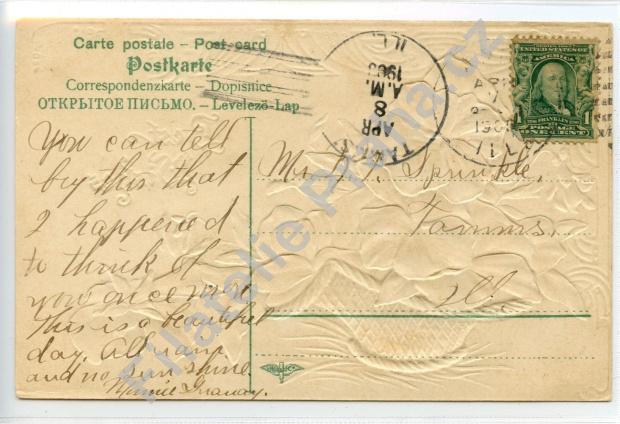 Carte postale – Post card
Postkarte
Correspondenzkarte – Dopisnice
ОТКРЫТОЕ ПИСЬМО. – Levelező-Lap
You can tell
by this that
I happened
to think of
you once more
This is a beautiful
day. All rain
and no sun shine.
Minnie
Mr. Sprinkle,
Tamms,
Ill.
APR
8
A.M.
ILL.
UNITED STATES OF
AMERICA
FRANKLIN
1 POSTAGE 1
ONE CENT
Filatelie Praha.cz